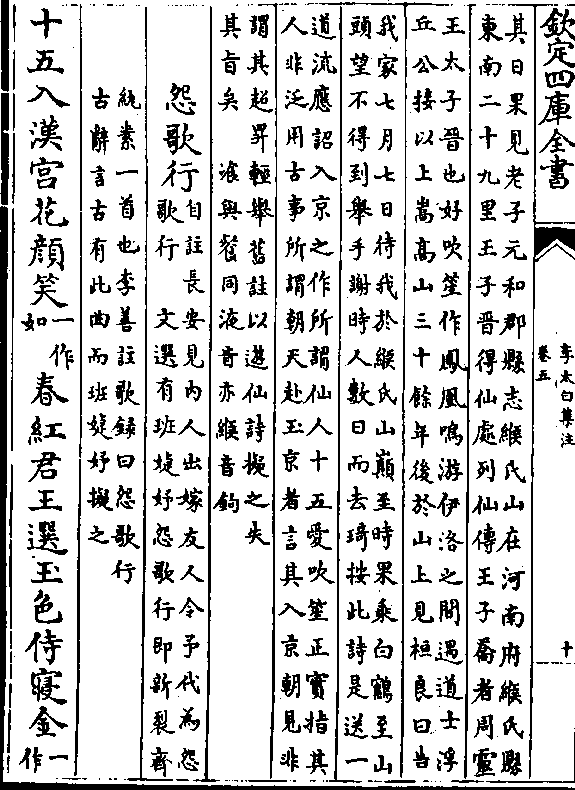 欽定四庫全書
李太白集注
卷五
十
其日果見老子元和郡縣志緱氏山在河南府緱氏縣
東南二十九里王子晉得仙處列仙傳王子喬者周靈
王太子晉也好吹笙作鳳凰鳴游伊洛之間遇道士浮
丘公接以上嵩高山三十餘年後於山上見桓良曰告
我家七月七日待我於緱氏山巔至時果乘白鶴至山
頭望不得到舉手謝時人數日而去琦按此詩是送一
道流應詔入京之作所謂仙人十五愛吹笙正實指其
人非泛用古事所謂朝天赴玉京者言其入京朝見非
謂其超昇輕舉舊註以遊仙詩擬之失
其旨矣 湌與餐同液音亦緱音鉤
怨歌行自註長安見內人出嫁友人令予代為怨
歌行 文選有班婕妤怨歌行即新製齊
紈素一首也李善註歌錄曰怨歌行
古辭言古有此曲而班婕妤擬之
十五入漢宮花顏笑一作如春紅君王選玉色侍寢金一作